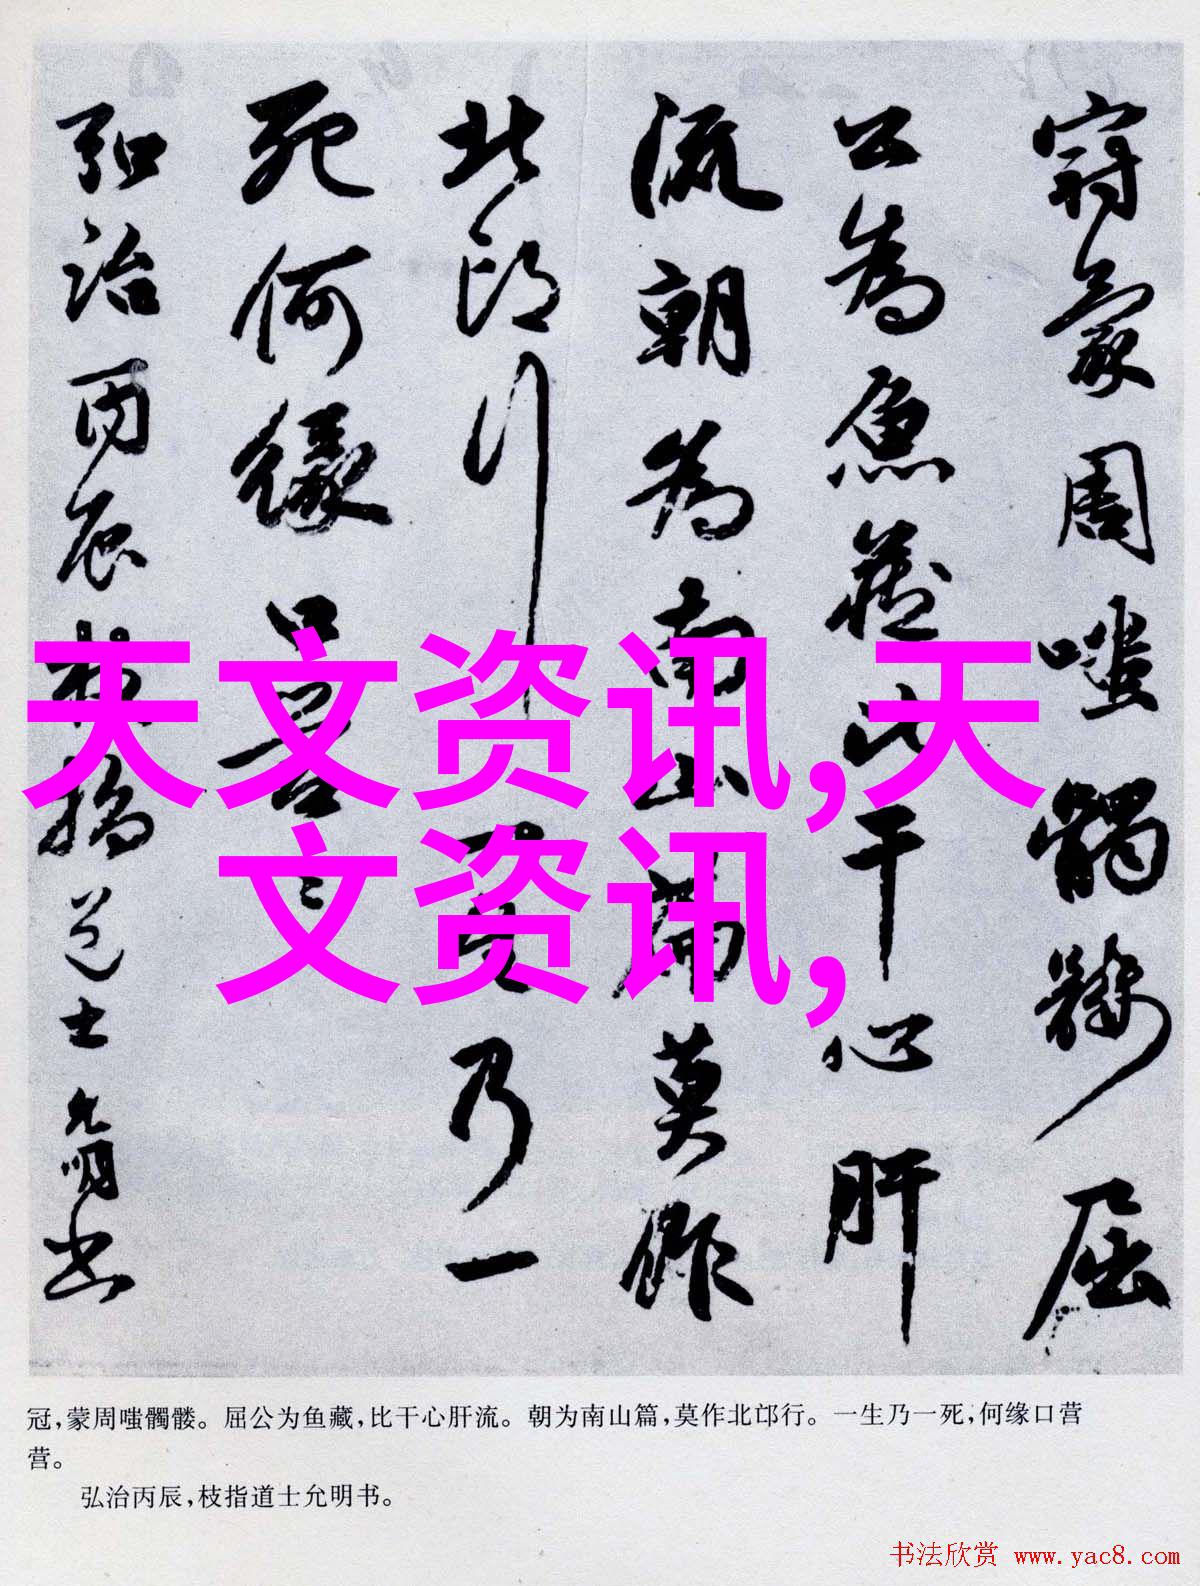 冠蒙周嗤髑髏屈
公為魚藏比干心肝
流朝為南山篇莫作
北邙行一生乃一
死何緣口營〻
弘治丙辰枝指道士允明書
天文资讯,天
文资讯,
冠,蒙周嗤髑髅。屈公为鱼藏,比干心肝流。朝为南山篇,莫作北邙行。一生乃一死,何缘口营
营。
弘治丙辰,枝指道士允明书。
书法欣赏 www.yac8.com